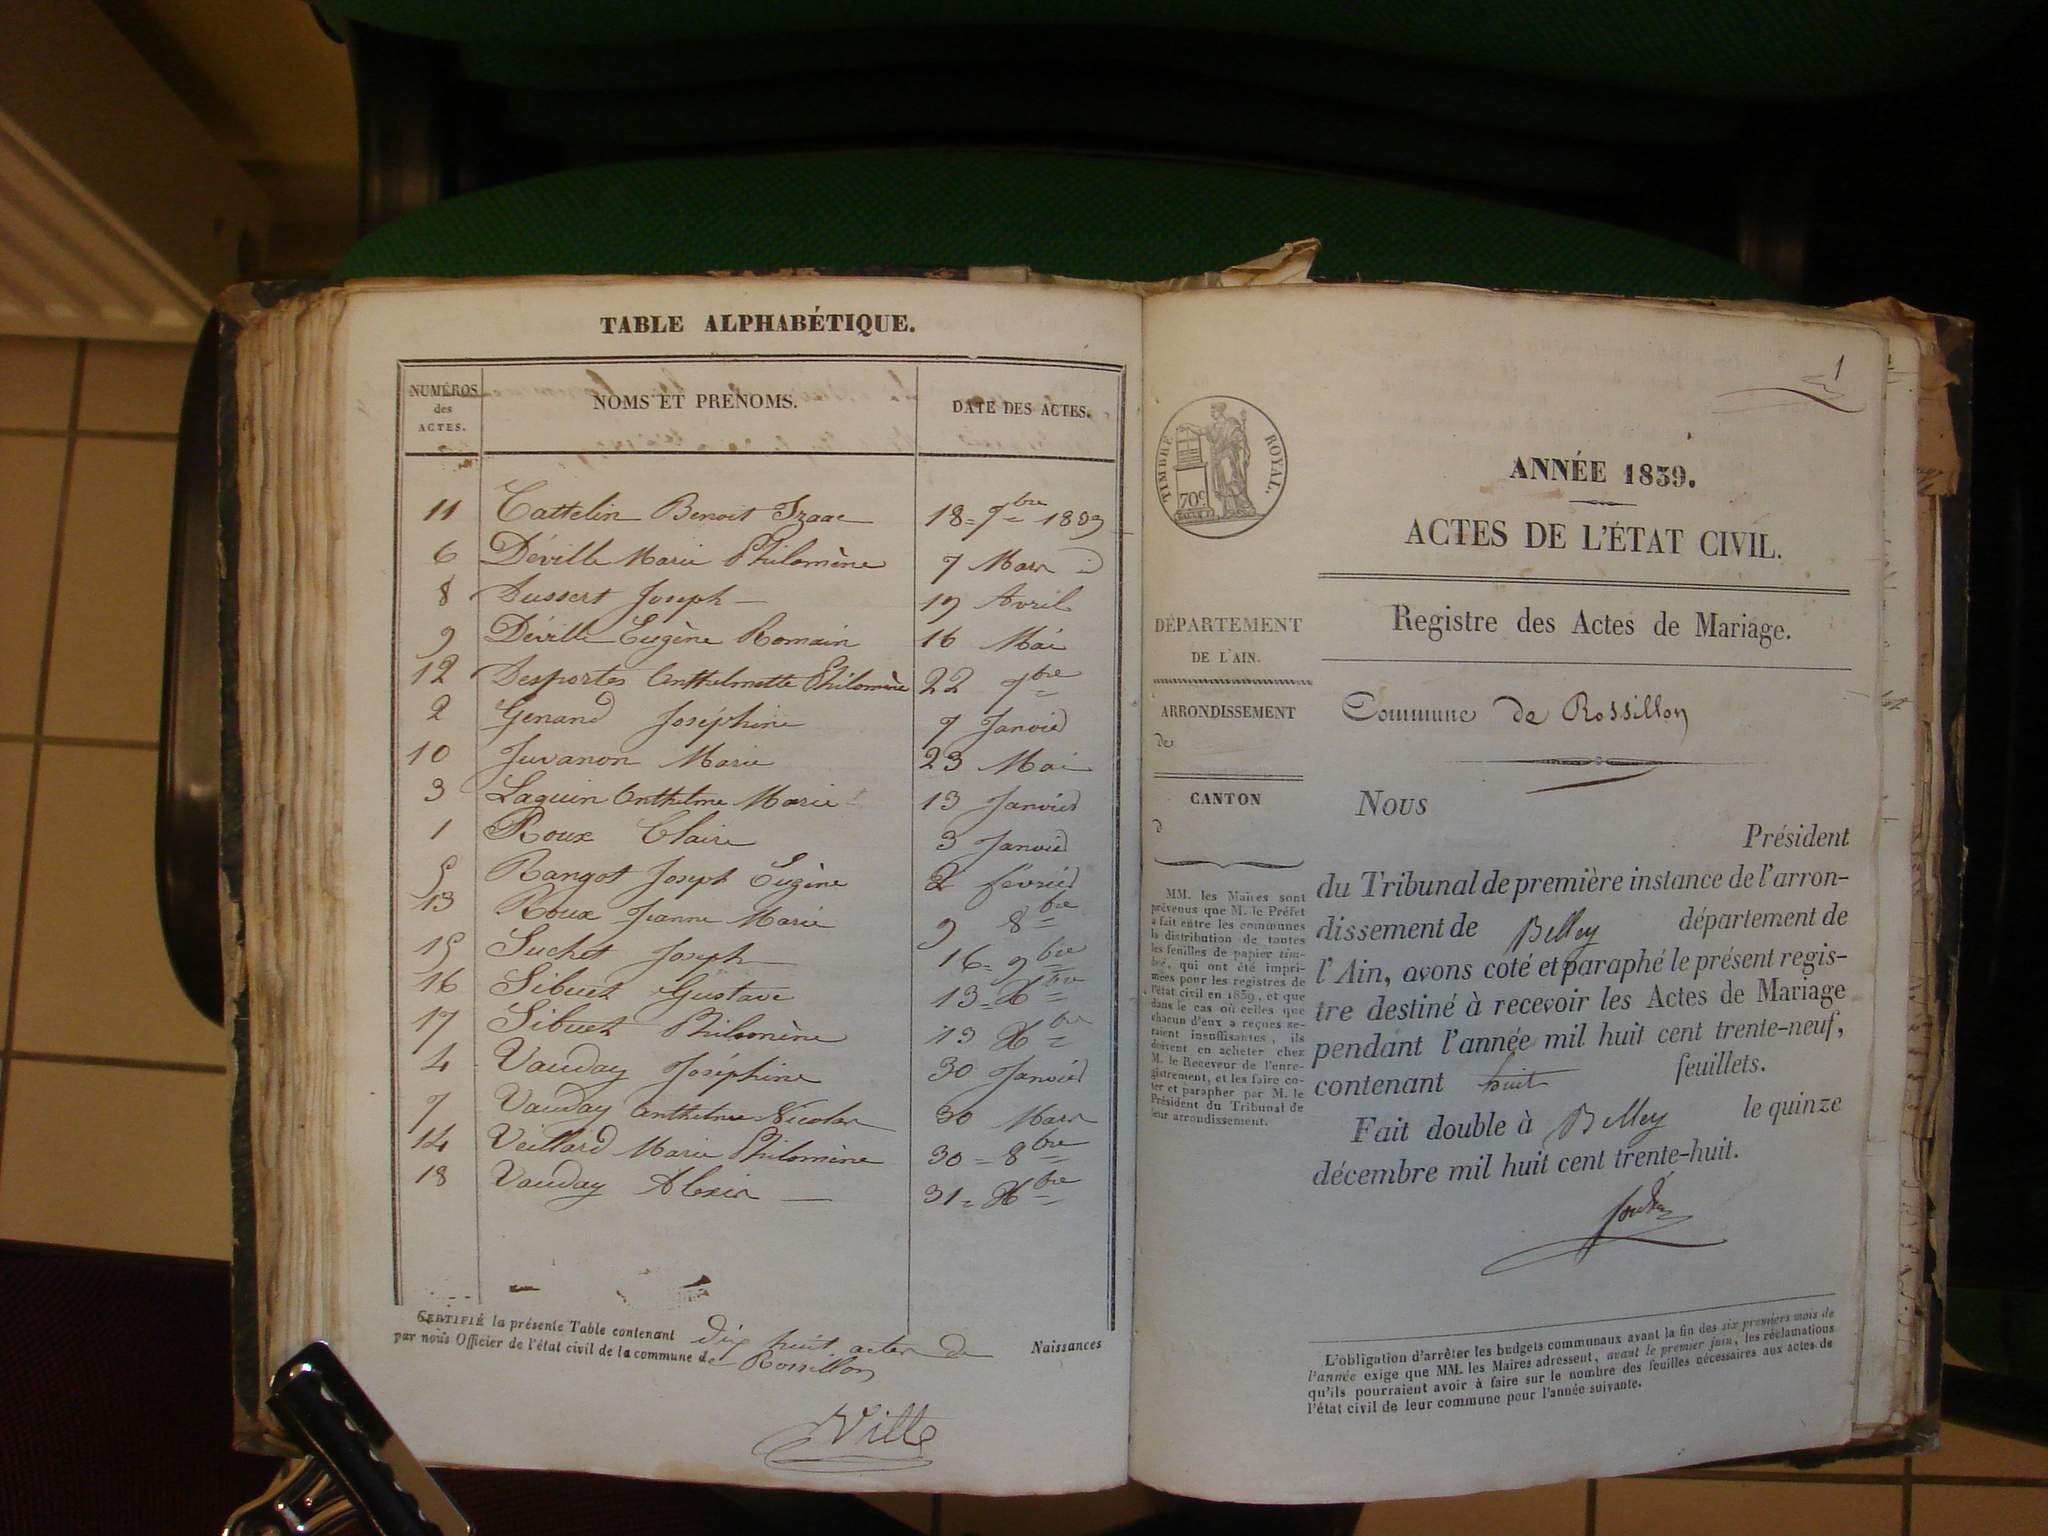 TABLE ALPHABÉTIQUE.
NUMÉROS
des
ACTES.
NOMS ET PRENOMS.
DATE DES ACTES.
11 Cattelin Benoit Izaac 18 = 7bre 1839
6 Déville Marie Philomène 7 Mars
8 Dussert Joseph 19 Avril
9 Déville Eugène Romain 16 Mai
12 Desportes Anthelmette Philomène 22 7bre
2 Genand Joséphine 7 Janvier
10 Juvanon Marie 23 Mai
3 Laguin Anthelme Marie 13 Janvier
1 Roux Claire 3 Janvier
5 Rangot Joseph Eugène 2 février
13 Roux Jeanne Marie 9 8bre
15 Suchet Joseph 16 = 9bre
16 Sibuet Gustave 13 = Xbre
17 Sibuet Philomène 13 Xbre
4 Vauday Joséphine 30 Janvier
7 Vauday Anthelme Nicolas 30 Mars
14 Veillard Marie Philomène 30 = 8bre
18 Vauday Alexis 31 = Xbre
CERTIFIÉ la présente Table contenant dix huit actes de Naissances
par nous Officier de l'état civil de la commune de Rossillon
Ville
1
TIMBRE ROYAL.
70c
ANNÉE 1839.
ACTES DE L'ÉTAT CIVIL.
Registre des Actes de Mariage.
DÉPARTEMENT
DE L'AIN.
ARRONDISSEMENT
de
CANTON
d
MM. les Maires sont
prévenus que M. le Préfet
a fait entre les communes
la distribution de toutes
les feuilles de papier tim-
bré, qui ont été impri-
mées pour les registres de
l'état civil en 1839, et que
dans le cas où celles que
chacun d'eux a reçues se-
raient insuffisantes, ils
doivent en acheter chez
M. le Receveur de l'enre-
gistrement, et les faire co-
ter et parapher par M. le
Président du Tribunal de
leur arrondissement.
Commune de Rossillon
Nous
Président
du Tribunal de première instance de l'arron-
dissement de Belley département de
l'Ain, avons coté et paraphé le présent regis-
tre destiné à recevoir les Actes de Mariage
pendant l'année mil huit cent trente-neuf,
contenant huit feuillets.
Fait double à Belley le quinze
décembre mil huit cent trente-huit.
L'obligation d'arrêter les budgets communaux avant la fin des six premiers mois de
l'année exige que MM. les Maires adressent, avant le premier juin, les réclamations
qu'ils pourraient avoir à faire sur le nombre des feuilles nécessaires aux actes de
l'état civil de leur commune pour l'année suivante.